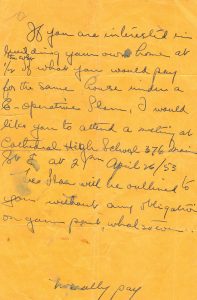 If you are interested in
building your own home at
1/2 of what you would pay
for the same house under a
Co-operative Plan, I would
like you to attend a meeting at
Cathedral High School 378 Main
St E at 2 pm April 26/53
will be outlined to
you without any obligation
on your part, whatsoever.
normally pay